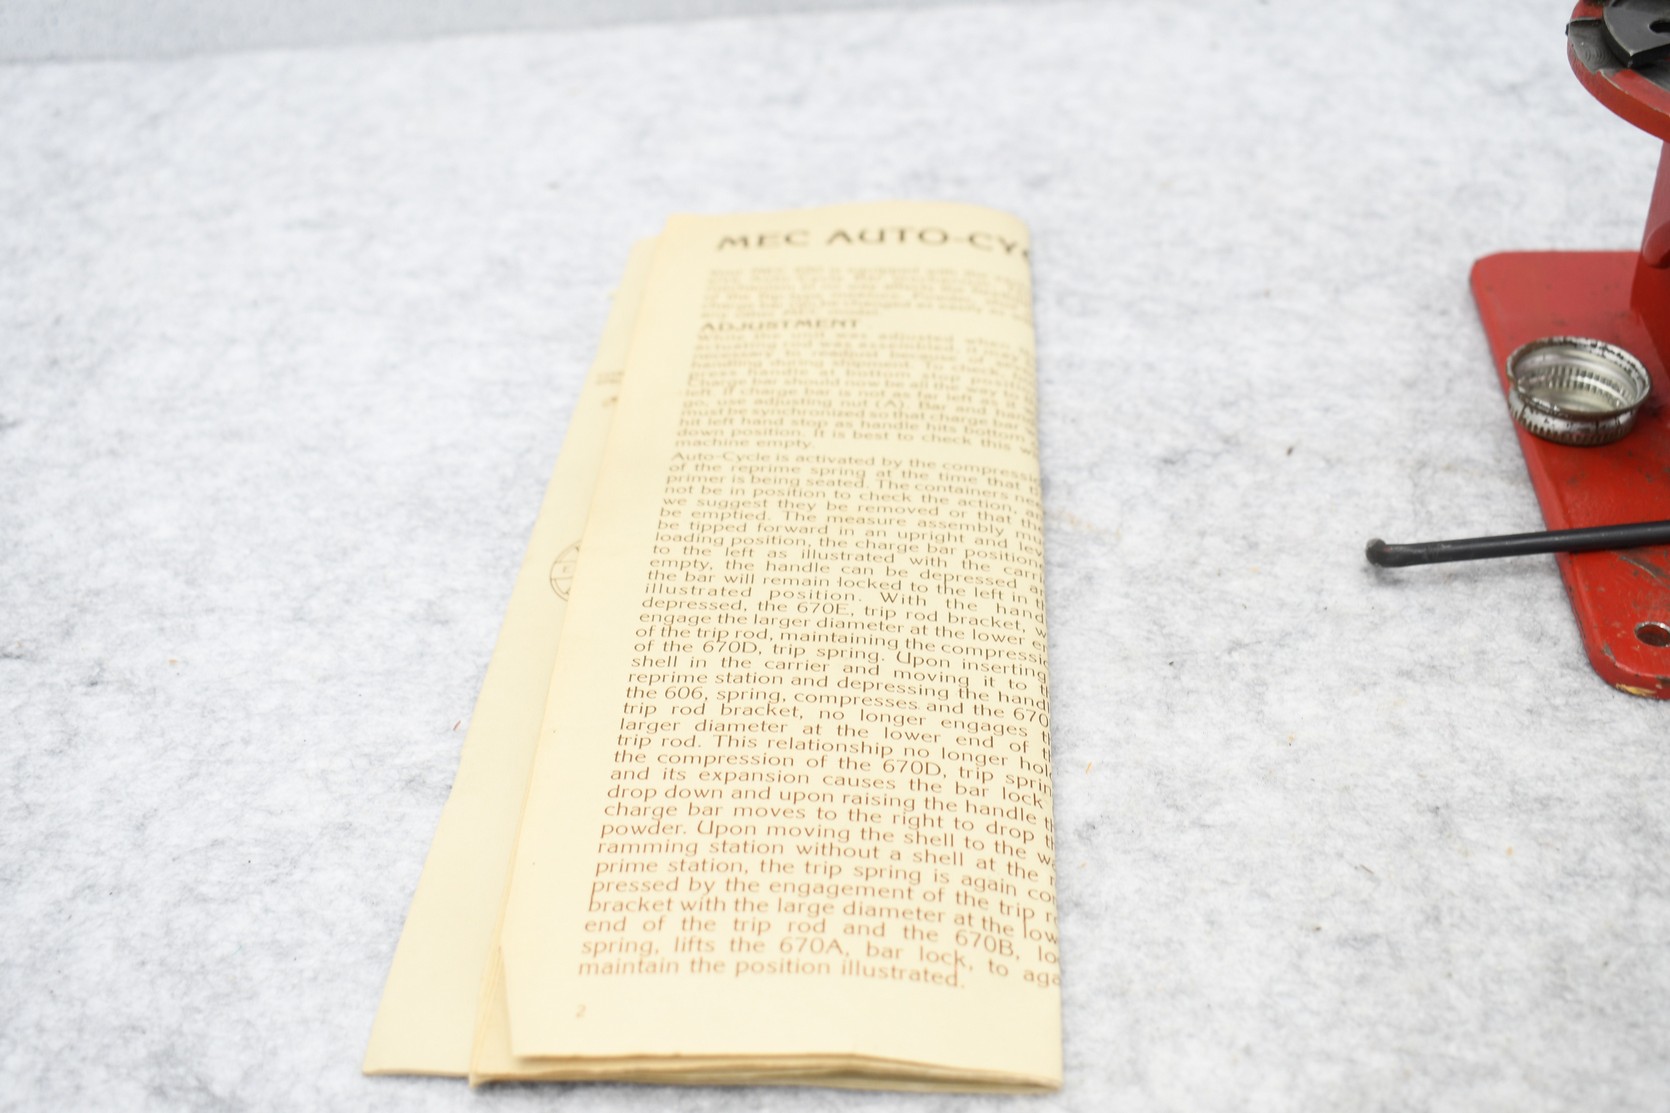 MEC AUTO-CY
ADJUSTMENT
While the unit was adjusted when
left. If charge bar is not as far left as it
go, use adjusting nut (A). Bar and hand
must be synchronized so that charge bar
hit left hand stop as handle hits bottom
down position. It is best to check this w
machine empty.
Auto-Cycle is activated by the compressi
of the reprime spring at the time that t
primer is being seated. The containers ne
not be in position to check the action, a
we suggest they be removed or that the
be emptied. The measure assembly mu
be tipped forward in an upright and lev
loading position, the charge bar positione
to the left as illustrated with the carri
empty, the handle can be depressed an
the bar will remain locked to the left in t
illustrated position. With the hand
depressed, the 670E, trip rod bracket, w
engage the larger diameter at the lower e
of the trip rod, maintaining the compressio
of the 670D, trip spring. Upon inserting
shell in the carrier and moving it to t
reprime station and depressing the hand
the 606, spring, compresses and the 670
trip rod bracket, no longer engages t
larger diameter at the lower end of t
trip rod. This relationship no longer hol
the compression of the 670D, trip sprin
and its expansion causes the bar lock
drop down and upon raising the handle t
charge bar moves to the right to drop t
powder. Upon moving the shell to the w
ramming station without a shell at the r
prime station, the trip spring is again co
pressed by the engagement of the trip r
bracket with the large diameter at the low
end of the trip rod and the 670B, lo
spring, lifts the 670A, bar lock, to aga
maintain the position illustrated.
2